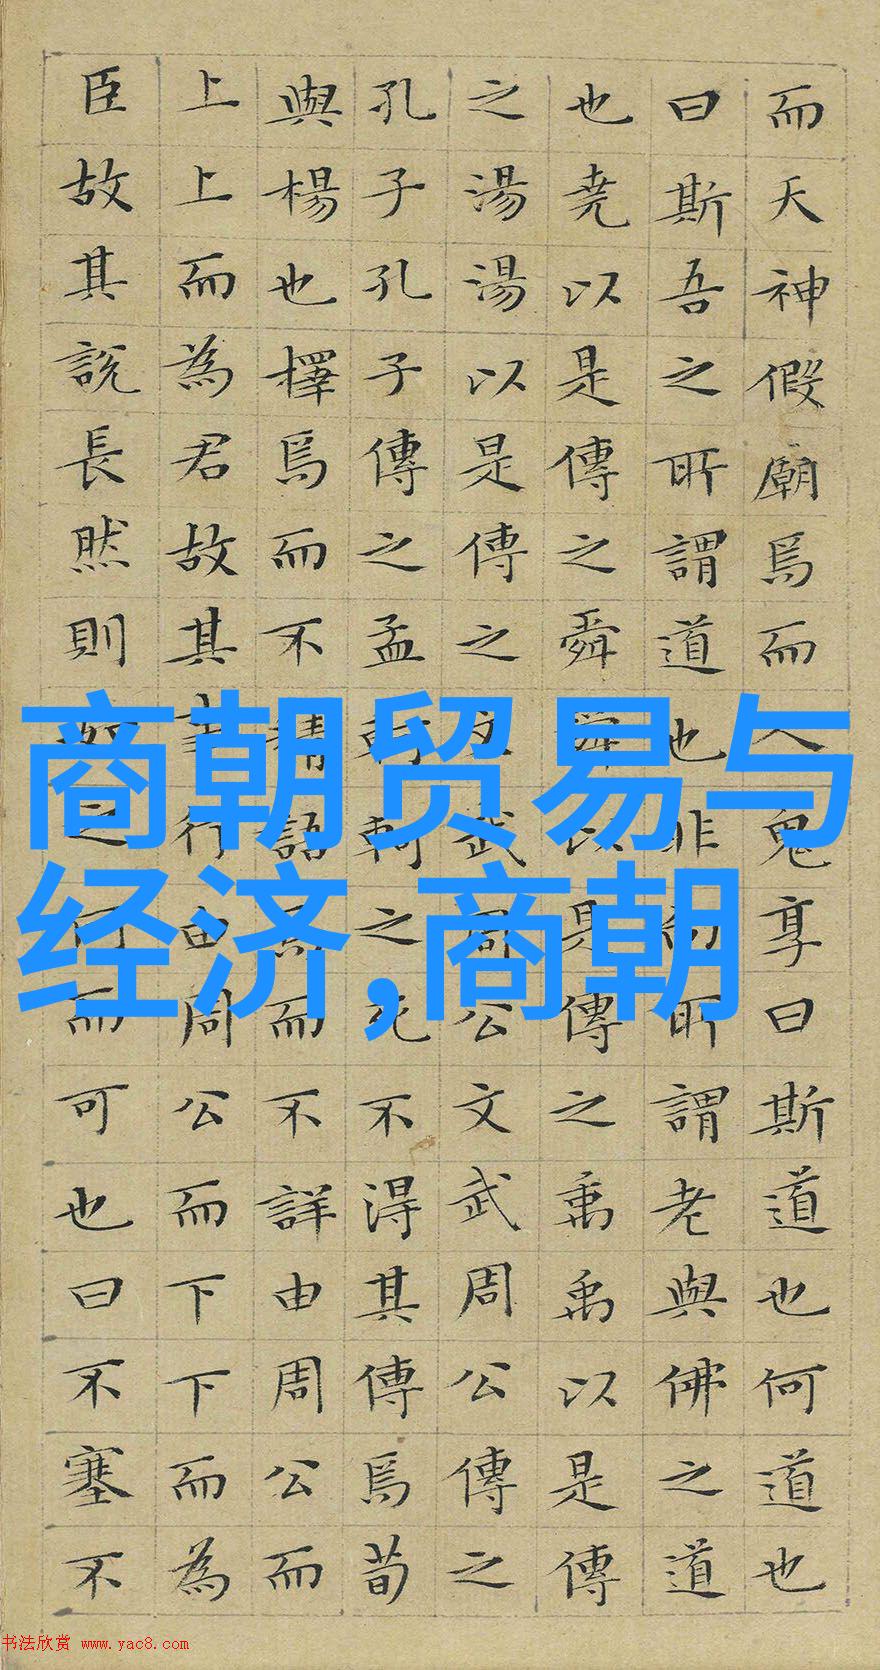 而天神假廟焉而人鬼享曰斯道也何道也
曰斯吾之所謂道也非向所謂老與佛之道
也堯以是傳之舜舜以是傳之禹禹以是傳
之湯湯以是傳之文武周公文武周公傳之
孔子孔子傳之孟軻軻之死不得其傳焉荀
與楊也擇焉而不精語焉而不詳由周公而
上上而為君故其事行由周公而下下而為
臣故其說長然則如之何而可也曰不塞不
商朝贸易与
经济,商朝
书法欣赏 www.yac8.com